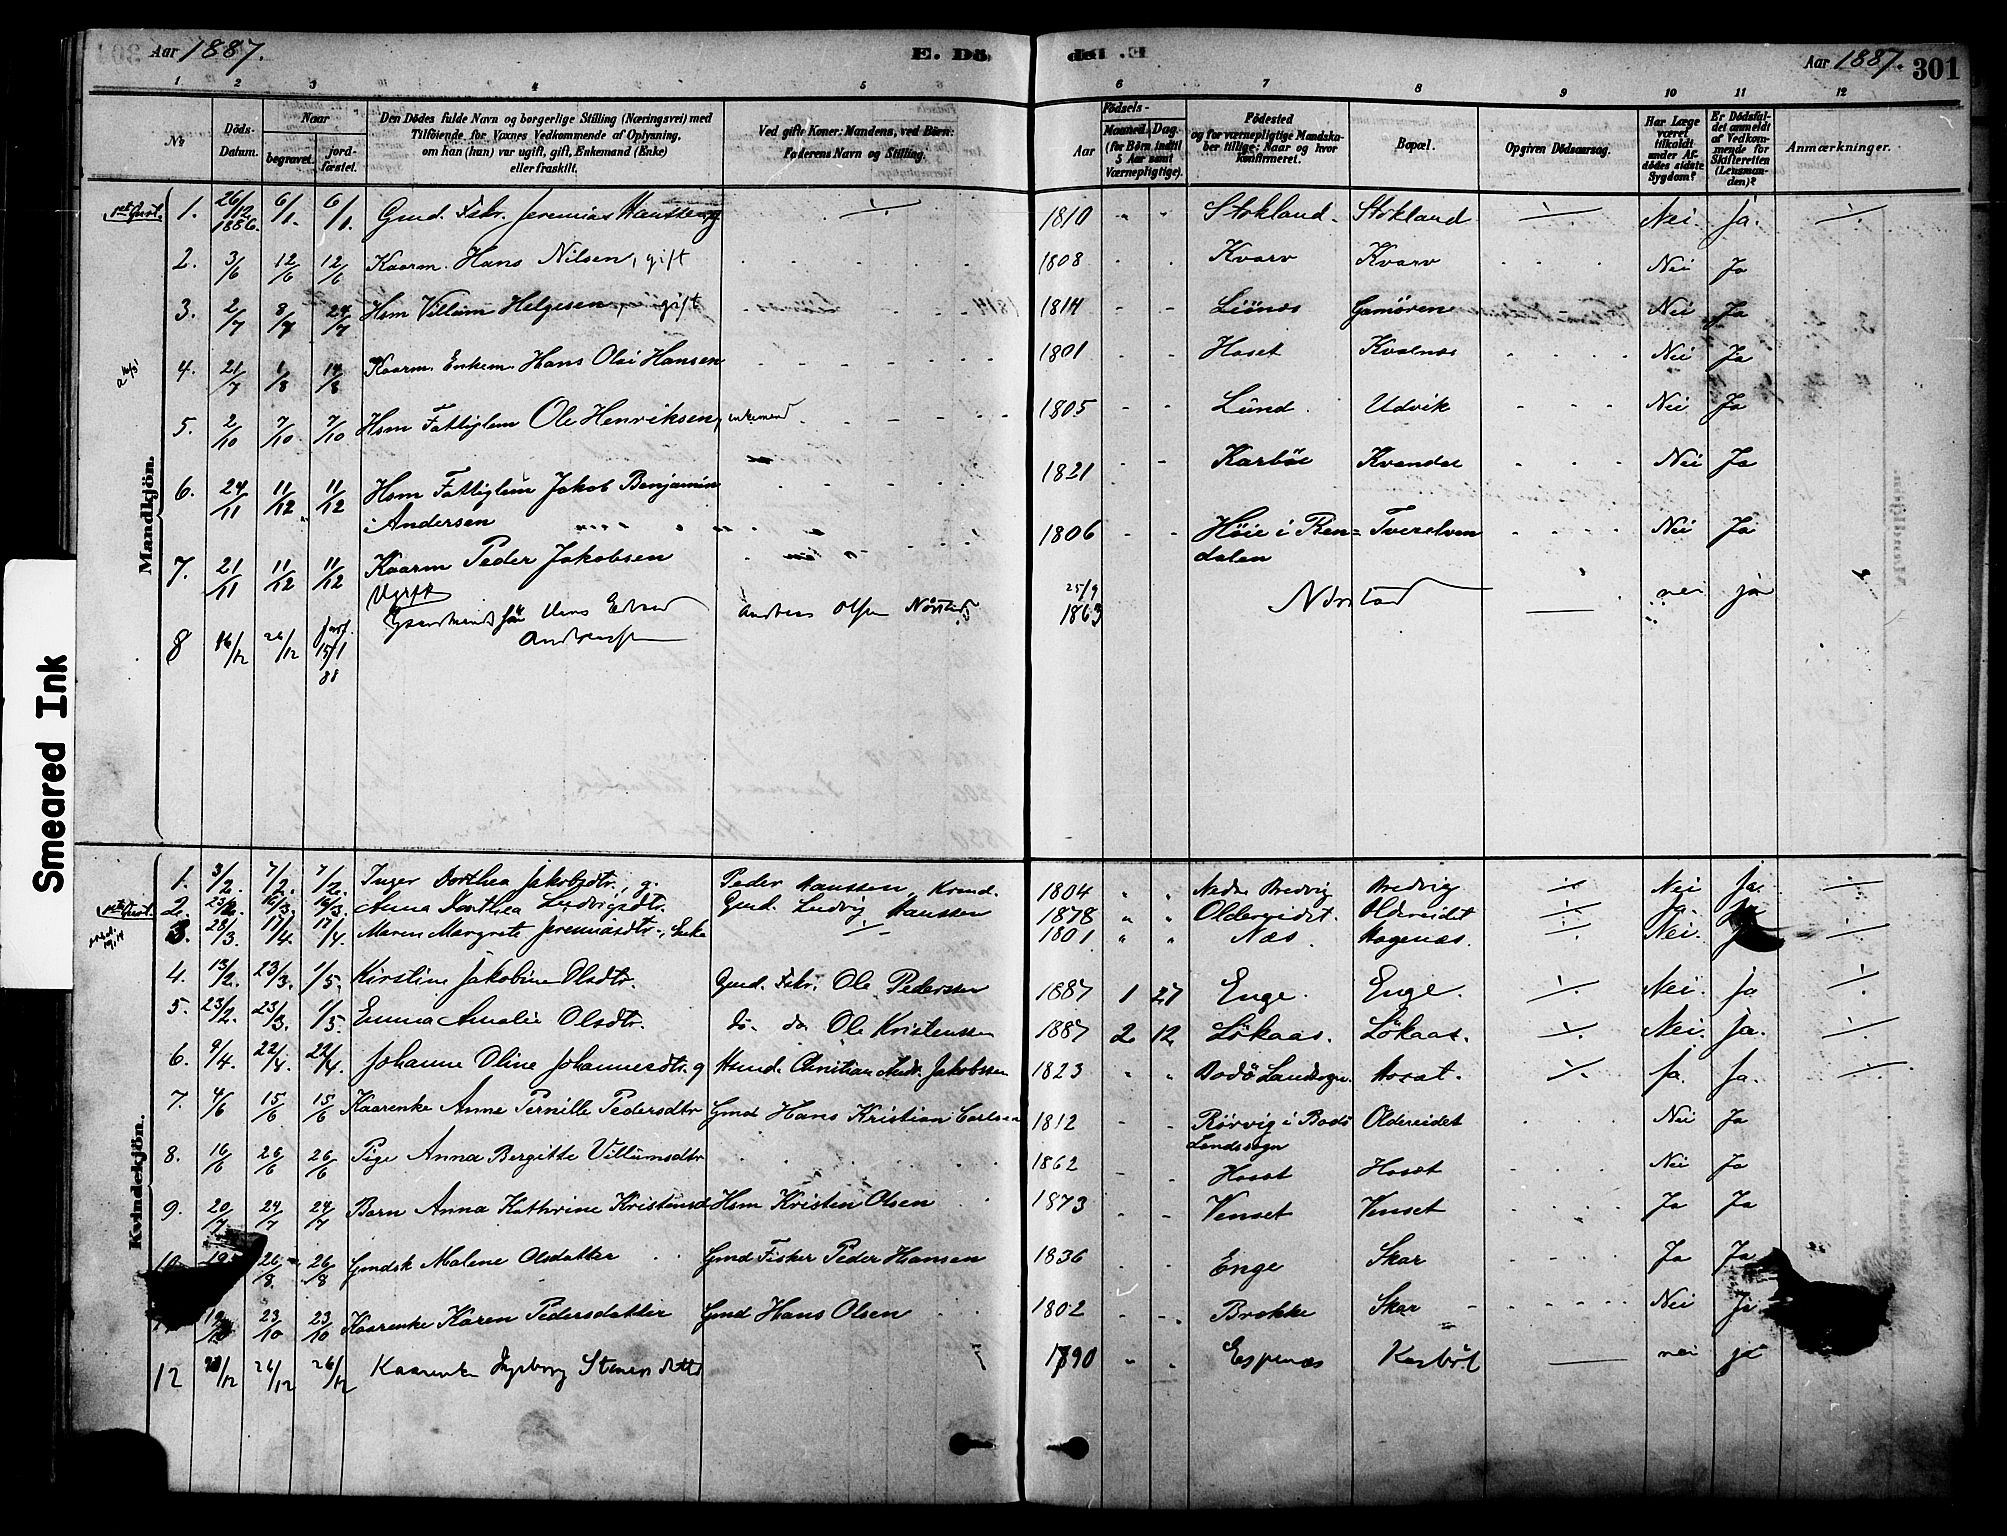 Aar 1887. E. Dö
del E. Aar 1887. 301
1 2 3 4 5 6 7 8 9 10 11 12
No
Döds-Datum.
Naar
begravet.
jord-fæstet.
Den Dödes fulde Navn og borgerlige Stilling (Næringsvei) med
Tilföiende for Voxnes Vedkommende af Oplysning,
om han (hun) var ugift, gift, Enkemand (Enke)
eller fraskilt.
Ved gifte Koner: Mandens, ved Börn:
Faderens Navn og Stilling.
Födsels-
Aar
Maaned. Dag.
(for Börn indtil
5 Aar samt
Værnepligtige).
Födested
og for værnepligtige Mandska-
ber tillige: Naar og hvor
konfirmeret.
Bopæl.
Opgiven Dödsaarsag.
Har Læge
været
tilkaldt
under Af-
dödes sidste
Sygdom?
Er Dödsfal-
det anmeldt
af Vedkom-
mende for
Skifteretten
(Lensman-
den)?
Anmærkninger.
Mandkjön.
1. 26/12 1886. 6/1. 6/1. Gmd. Fskr. Jeremias Hanssen 1810 Stokland. Stokland Nei. Ja.
2. 3/6 12/6 12/6 Kaarm. Hans Nilsen, gift 1808 Kvarv Kvarv Nei Ja
3. 2/7 8/7 24/7 Hsm Villum Helgesen, gift 1814 Liönes Gamören Nei Ja
4. 21/7 1/8 14/8 Kaarm. Enkem. Hans Olai Hansen 1801 Hoset Kvalnes Nei Ja
5. 2/10 7/10 7/10 Hsm Fattiglem Ole Henriksen, enkemand 1805 Lund Udvik Nei Ja
6. 24/11 11/12 11/12 Hsm Fattiglem Jakob Benjamin Andersen 1821 Karböl Kvandal Nei Ja
7. 21/11 11/12 11/12 Kaarm Peder Jakobsen 1806 Höie i Bendalen Tverelven Nei Ja
8 16/12 26/12 15/1 88 Ugift Gaardmands sön Andreassen Andreas Olsen Nörstad 25/9 1863 Nörstad nei ja
Kvindekjön.
1. 3/2. 7/2. 7/2. Inger Dorthea Jakobsdtr., g. Peder Hanssen, Kvmd. 1804 Nedre Bredvig Bredvig Nei Ja.
2. 23/2. 16/3. 16/3. Anna Dorthea Ludvigsdtr. Gmd. Ludvig Hanssen 1878 Oldereidet. Oldereidet Ja.
3. 28/3. 17/4. 17/4. Maren Margrete Jeremiasdtr., Enke 1801 Næs. Hagenæs. Nei.
4. 13/2. 23/3. 1/5. Kirstine Jakobine Olsdtr. Gmd. Fskr. Ole Pederssen 1887 1 27 Enge. Enge. Nei. Ja
5. 23/2. 23/3. 1/5. Emma Amalie Olsdtr. do. do Ole Kristenssen 1887 2 12 Lökaas. Lökaas. Nei. Ja.
6. 9/4. 22/4. 22/4. Johanne Oline Johannesdtr. g Hsmd. Christian Andr. Jakobssen 1823 Bodö Landsogn. Hosæt. Ja. Ja.
7. 4/6 15/6 15/6 Kaarenke Anne Pernille Pedersdtr Gmd Hans Kristian Carlsen 1812 Rörvig i Bodö Landsogn Oldereidet Nei Ja
8. 16/6 26/6 26/6 Pige Anna Bergitte Villumsdtr 1862 Hosæt Hosæt Nei Ja
9. 20/7 24/7 24/7 Barn Anna Kathrine Kristensd Hsm Kristen Olsen 1873 Venset Venset Ja Ja
10. 26/8 26/8 Gmdsk Malene Olsdatter Gmd Fisker Peder Hansen 1836 Enge Skar Ja Ja
23/10 23/10 Kaarenke Karen Pedersdatter Gmd Hans Olsen 1802 Brække Skar Nei Ja
12 26/12 26/12 Kaarenke Ingeborg 1790 Espenæs Karböl nei ja
Smeared Ink